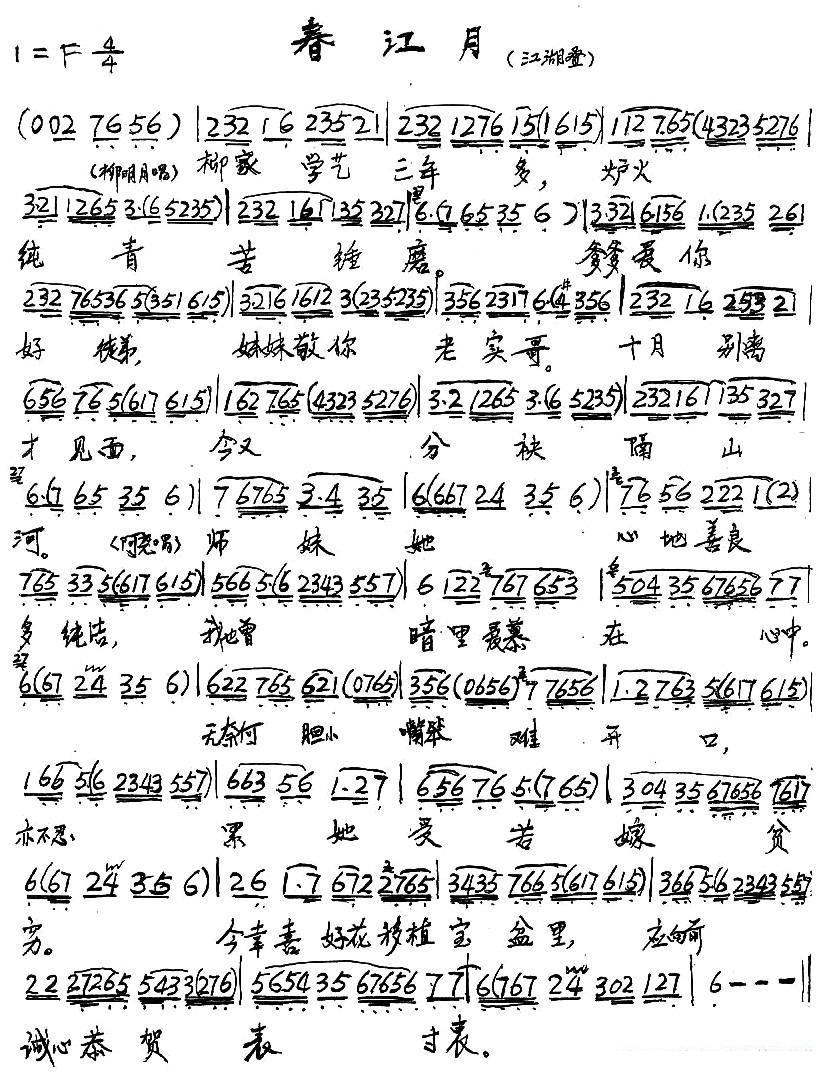 春江月(江湖叠)
1=F 4/4
(002 7656) | 232 16 2352 1 | 232 1276 15(1615) | 112 765(4323 5276 |
(柳明月唱) 柳家 学艺 三年 多, 炉火
3·21 1265 3·(6 5235) | 232 161 135 327 | 6·(7 65 35 6) | 3·32 6156 1·(235 261
纯 青 苦 锤 磨。 爹爹爱你
232 765365(351 615) | 3216 1612 3(235235) | 356 2317 6·(#4 356 | 232 16 253 21 |
好 徒弟, 妹妹敬你 老实哥。 十月 别离
656 76 5(617 615) | 162 765 (4323 5276) | 3·2 1265 3·(6 5235) | 232161 135 327 |
才见面, 今又 分 袂 隔 山
6·(7 65 35 6) | 7 6765 3·4 35 | 6(667 24 35 6) | 76 56 222 1(2) |
河。 (阿尧唱) 师 妹 她 心地善良
765 335(·617 615) | 5665·(6 2343 557) | 6 122 767 653 | 504 35 67656 77 |
多纯洁, 我也曾 暗里爱慕 在 心中。
6(67 24 35 6) | 622 765 621(0765) | 356(0656) 7 7656 | 1·2 763 5(617 615) |
无奈何 胆小 嘴笨 难 开 口,
166 5·(6 2343 557) | 663 56 1·27 | 656 76 5·(7 65) | 304 35 67656 7617
亦不忍 累 她 受 苦 嫁 贫
6(67 24 35 6) | 26 1·7 672 2765 | 3435 766 5(617 615) | 366 5·(6 2343 557
穷。 今幸喜 好花移植宝 盆里, 应向前
22 27265 5433(276) | 5654 35 67656 77 | 6(767 24 302 127 | 6--- ||
诚心恭 贺 表 寸衷。